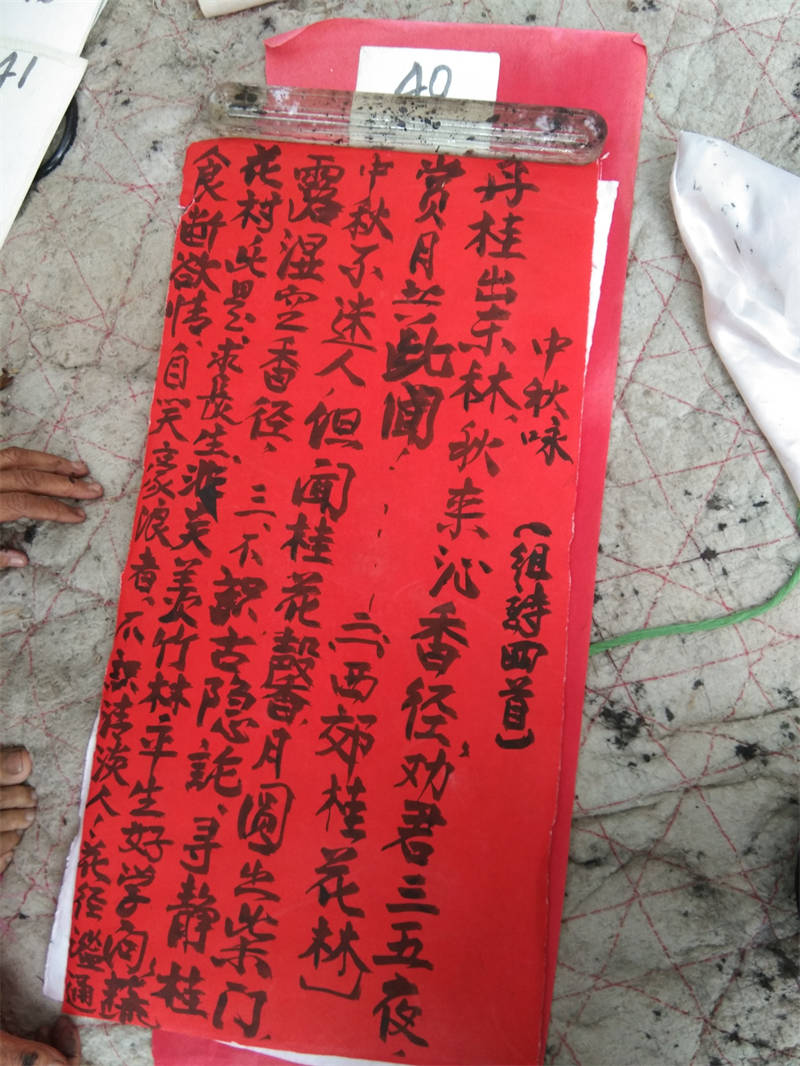 中秋咏 (组诗四首)
丹桂出东林、秋来沁香径,劝君三五夜、
赏月共此闻、二、[西郊桂花林]
中秋不迷人,但闻桂花馨香月圆出柴门、
露湿空香径、三、不识古隐詑、寻静桂
花村此是求长生、游关羡竹林平生好学问,
食断欲情、自笑豪浪者、不识清淡人、花径溢通
41
40